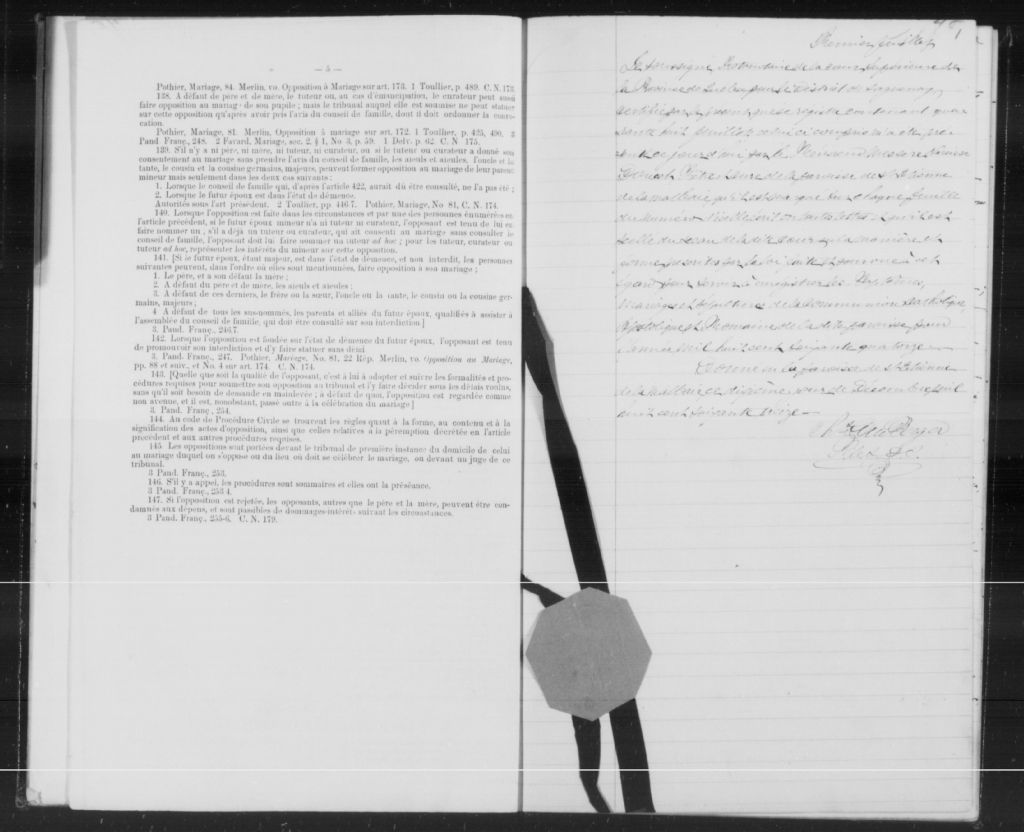 — 5 —
Pothier, Mariage, 84. Merlin, vo. Opposition à Mariage sur art. 173. 1 Toullier, p. 489. C. N. 173.
138. A défaut de père et de mère, le tuteur ou, au cas d'émancipation, le curateur peut aussi
faire opposition au mariage de son pupile ; mais le tribunal auquel elle est soumise ne peut statuer
sur cette opposition qu'après avoir pris l'avis du conseil de famille, dont il doit ordonner la convo-
cation.
Pothier, Mariage, 81. Merlin, Opposition à mariage sur art. 172. 1 Toullier, p. 425, 490. 3
Pand Franç., 248. 2 Favard, Mariage, sec. 2, § 1, No 3, p. 59. 1 Delv. p. 62 C. N 175.
139. S'il n'y a ni père, ni mère, ni tuteur, ni curateur, ou si le tuteur ou curateur a donné son
consentement au mariage sans prendre l'avis du conseil de famille, les aïeuls et aïeules, l'oncle et la
tante, le cousin et la cousine germains, majeurs, peuvent former opposition au mariage de leur parent
mineur mais seulement dans les deux cas suivants :
1. Lorsque le conseil de famille qui, d'après l'article 122, aurait dû être consulté, ne l'a pas été ;
2. Lorsque le futur époux est dans l'état de démence.
Autorités sous l'art précédent. 2 Toullier, pp. 446-7. Pothier, Mariage, No 81, C. N. 174.
140. Lorsque l'opposition est faite dans les circonstances et par une des personnes énumérées en
l'article précédent, si le futur époux mineur n'a ni tuteur ni curateur, l'opposant est tenu de lui en
faire nommer un ; s'il a déjà un tuteur ou curateur, qui ait consenti au mariage sans consulter le
conseil de famille, l'opposant doit lui faire nommer un tuteur ad hoc ; pour les tuteur, curateur ou
tuteur ad hoc, représenter les intérêts du mineur sur cette opposition.
141. [Si le futur époux, étant majeur, est dans l'état de démence, et non interdit, les personnes
suivantes peuvent, dans l'ordre où elles sont mentionnées, faire opposition à son mariage ;
1. Le père, et à son défaut la mère ;
2. A défaut du père et de mère, les aïeuls et aïeules ;
3. A défaut de ces derniers, le frère ou la sœur, l'oncle ou la tante, le cousin ou la cousine ger-
mains, majeurs ;
4 A défaut de tous les sus-nommés, les parents et alliés du futur époux, qualifiés à assister à
l'assemblée du conseil de famille, qui doit être consulté sur son interdiction.]
3. Pand. Franç., 246,7.
142. Lorsque l'opposition est fondée sur l'état de démence du futur époux, l'opposant est tenu
de promouvoir son interdiction et d'y faire statuer sans délai.
3. Pand. Franç., 247. Pothier, Mariage, No. 81, 22 Rép. Merlin, vo. Opposition au Mariage,
pp. 88 et suiv., et No. 4 sur art. 174. C. N. 174.
143. [Quelle que soit la qualité de l'opposant, c'est à lui à adopter et suivre les formalités et pro-
cédures requises pour soumettre son opposition au tribunal et l'y faire décider sous les délais voulus,
sans qu'il soit besoin de demande en mainlevée ; à défaut de quoi, l'opposition est regardée comme
non avenue, et il est, nonobstant, passé outre à la célébration du mariage.]
3. Pand. Franç., 254.
144. Au code de Procédure Civile se trouvent les règles quant à la forme, au contenu et à la
signification des actes d'opposition, ainsi que celles relatives à la péremption décrétée en l'article
précédent et aux autres procédures requises.
145. Les oppositions sont portées devant le tribunal de première instance du domicile de celui
au mariage duquel on s'oppose ou du lieu où doit se célébrer le mariage, ou devant un juge de ce
tribunal.
3 Pand. Franç., 253.
146. S'il y a appel, les procédures sont sommaires et elles ont la préséance.
3 Pand. Franç., 253 4.
147. Si l'opposition est rejetée, les opposants, autres que le père et la mère, peuvent être con-
damnés aux dépens, et sont passibles de dommages-intérêts suivant les circonstances.
3 Pand. Franç., 255-6. C. N. 179.
Premier feuillet
Le soussigné Protonotaire de la Cour Supérieure de
la Province de Québec pour le district de Saguenay
certifie que le présent registre contenant qua-
rante huit feuillets celui ci compris m'a été pré-
senté ce jour d'hui par le Révérend Messire
Prêtre Curé de la paroisse de St Etienne
de la Malbaie, qu'il est sur chaque feuille
du numéro d'icelle écrit en toutes lettres & qu'il est
scellé du sceau de la dite Cour en la manière et
forme
pour servir à enregistrer les Baptêmes,
Mariages et Sépultures de la Communion Catholique,
Apostolique et Romaine de la dite paroisse pour
l'année Mil huit cent soixante quatorze —
Donné en la paroisse de St Etienne
de la Malbaie ce dixième jour de Décembre mil
huit cent soixante treize —